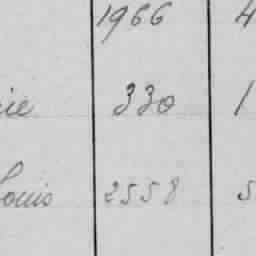 1966 4
ie 330 1
Louis 2558 5